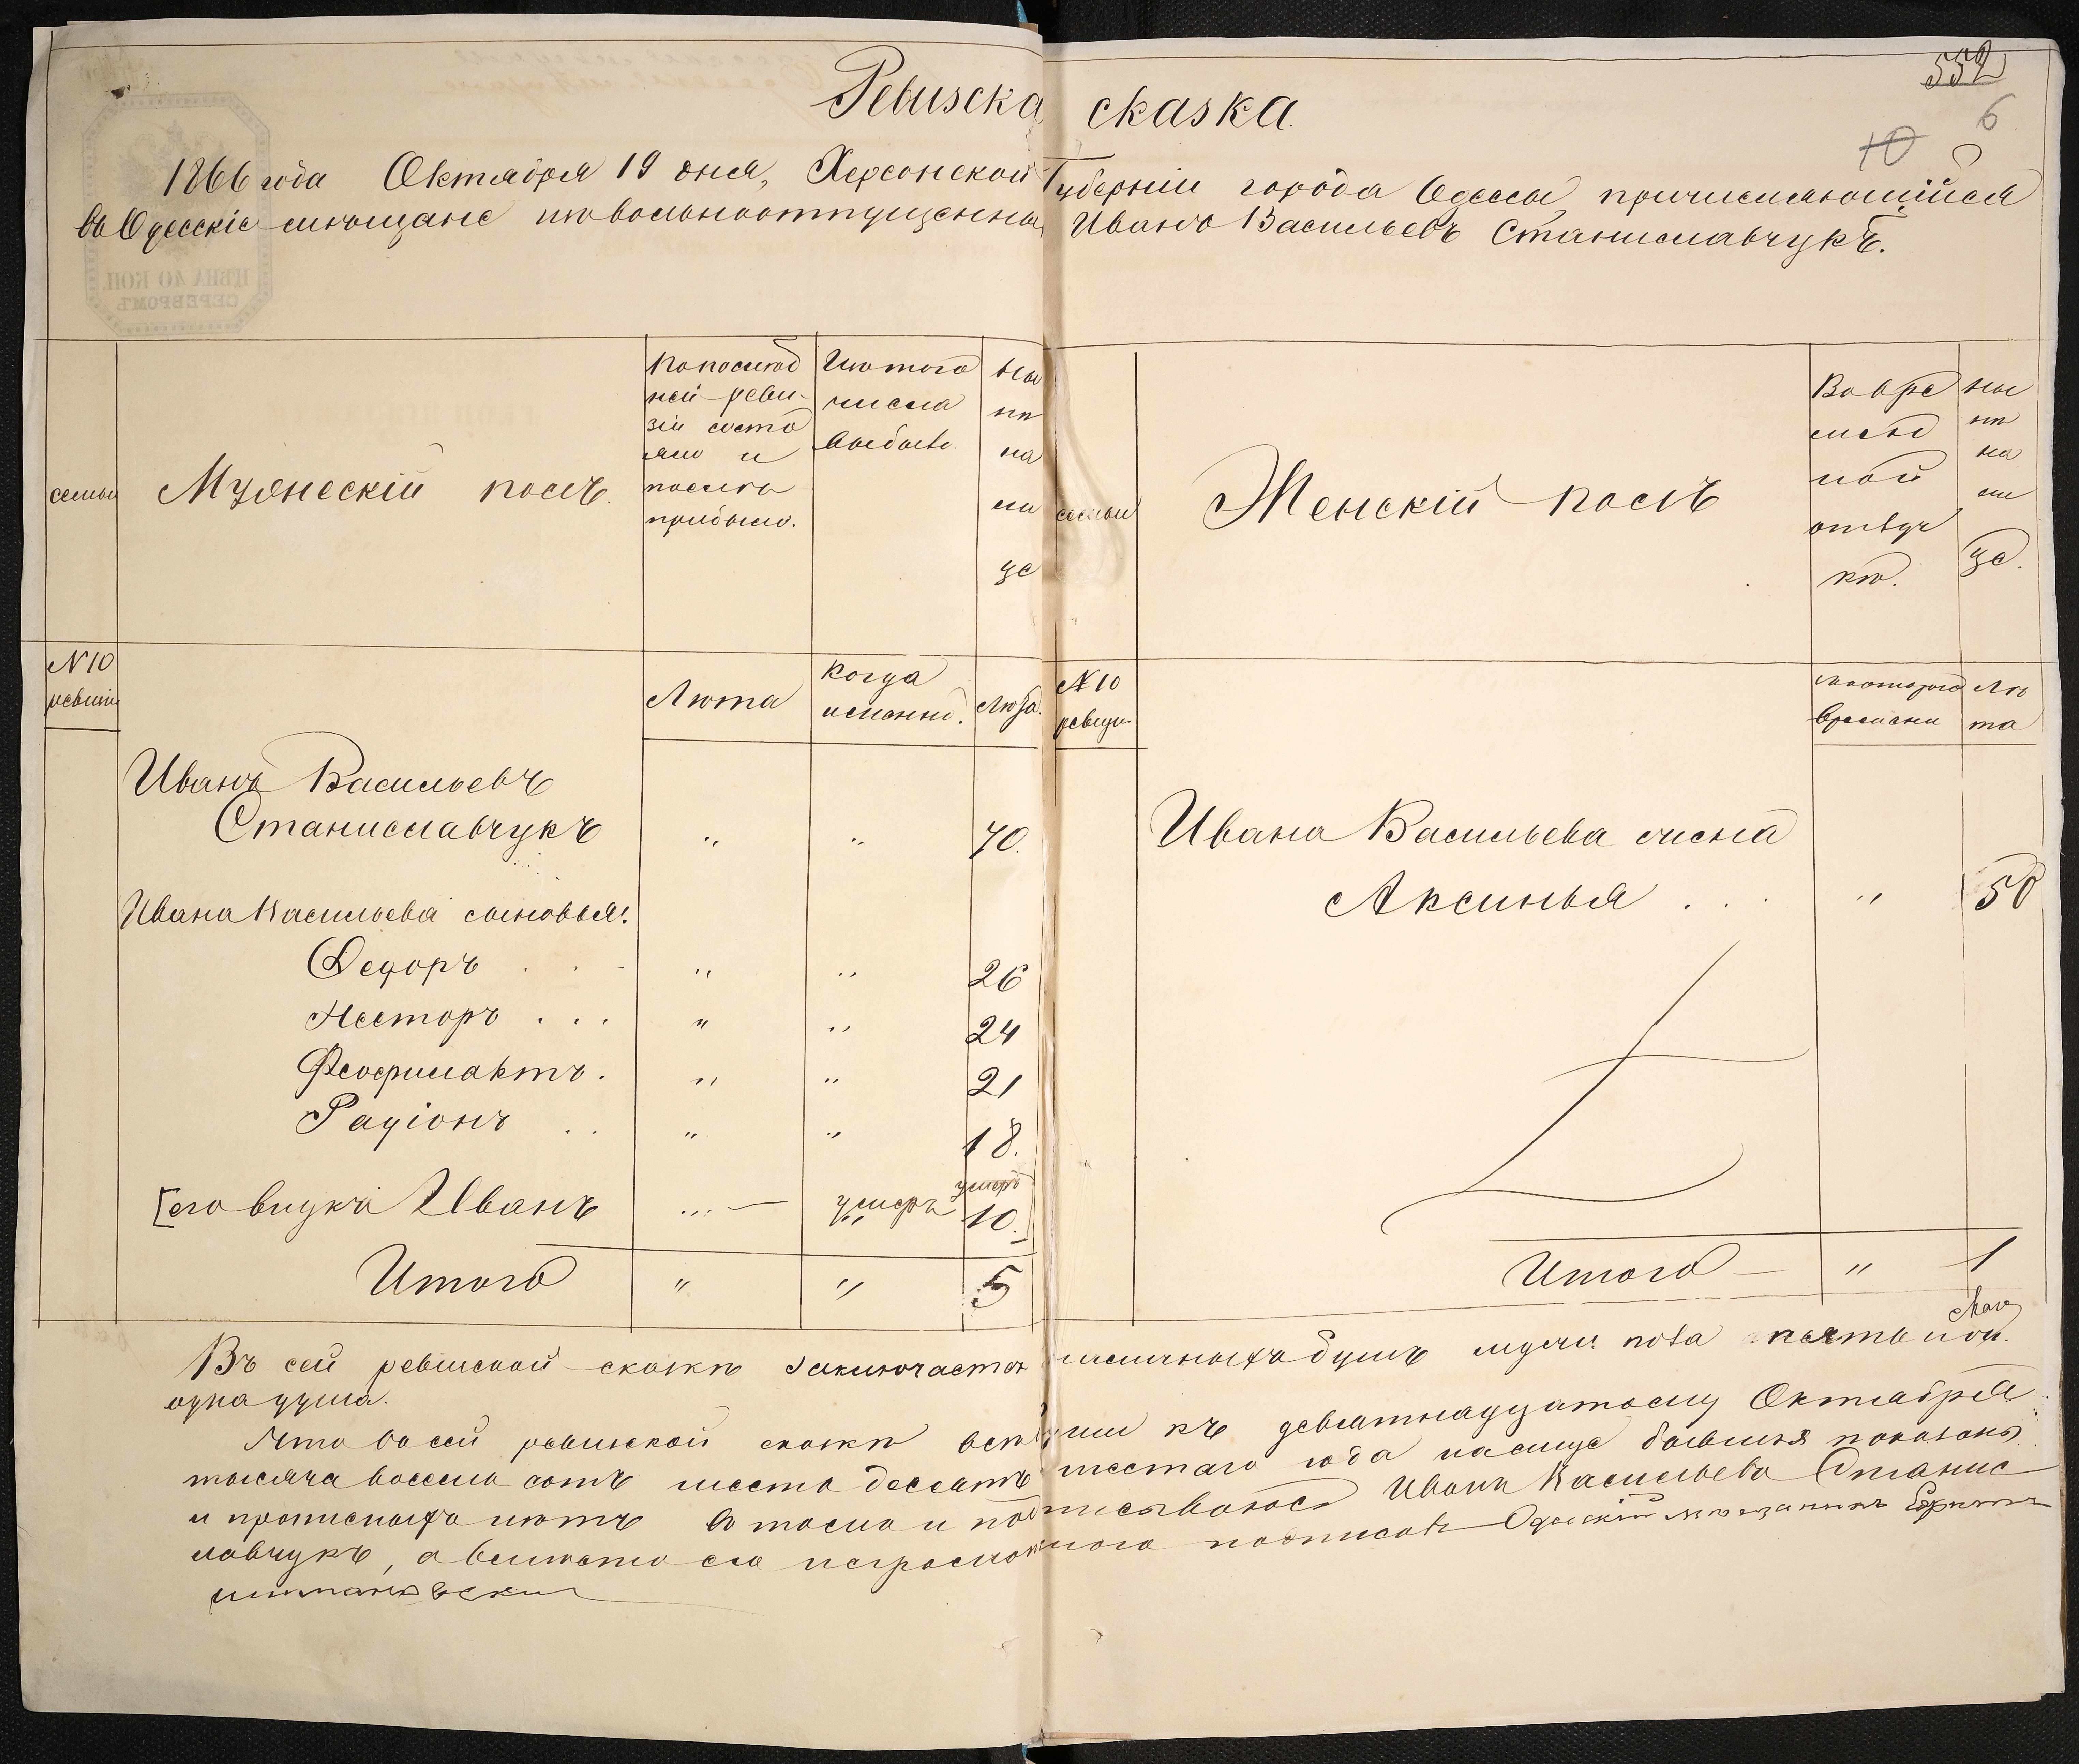 552
6
10
Ревизска сказка.
1866 года Октября 19 дня, Херсонской Губерніи города Одессы, причисляющійся
въ Одесскіе мѣщане из вольноотпущенны Иванъ Васильевъ Станиславчукъ.
ЦѢНА 40 КОП.
СЕРЕБРОМЪ
семьи
Мужескій полъ.
По послѣд
ней реви-
зіи состо
яло и
послѣ
прибыло.
Изъ того
числа
выбыло
Ны
нѣ
на
ли
це
семьи
Женскій полъ
Во вре
менной
отлуч
кѣ.
ны
нѣ
на
ли
це.
N 10
ревизіи
Лѣта
Когда
именно.
Лѣта.
N 10
ревизіи
съ котораго
времени
Лѣ
та
Иванъ Васильевъ
Станиславчукъ " " 70.
Ивана Васильева сыновья:
Федоръ . . - " " 26
Несторъ . . . " " 24
Феофилактъ . " " 21
Радіонъ . . " " 18.
умеръ
[его внукъ Иванъ " — умеръ 10.
Итого " " 5
Ивана Васильева жена
Аксинья . . . " 50
Итого — " 1
Въ сей ревизской сказкѣ заключается наличныхъ душъ мужес: пола пять и жен.
одна душа.
Что въ сей ревизской сказкѣ всѣ души къ девятнадцатому Октября
тысяча восемь сотъ шесть десятъ шестаго года на лице бывшія показаны
и прописныхъ нѣтъ въ томъ и подписываюсь Иванъ Васильевъ Станис
лавчукъ, а вмѣсто его неграмотного подписалъ Одесскій мѣщанинъ